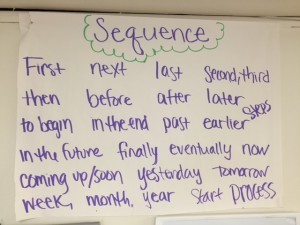 Sequence
First next last second, third
then before after later
to begin in the end past earlier steps
in the future finally eventually now
coming up/soon yesterday Tomorrow
week, month, year start process